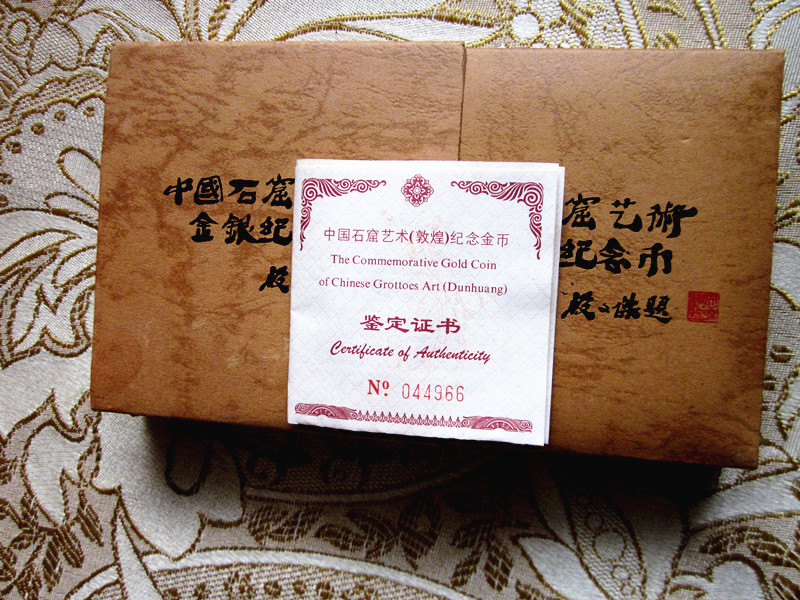 中國石窟
金銀紀
殷
中国石窟艺术(敦煌)纪念金币
The Commemorative Gold Coin
of Chinese Grottoes Art (Dunhuang)
鉴定证书
Certificate of Authenticity
Nº. 044966
窟艺術
紀念币
殷之傑題